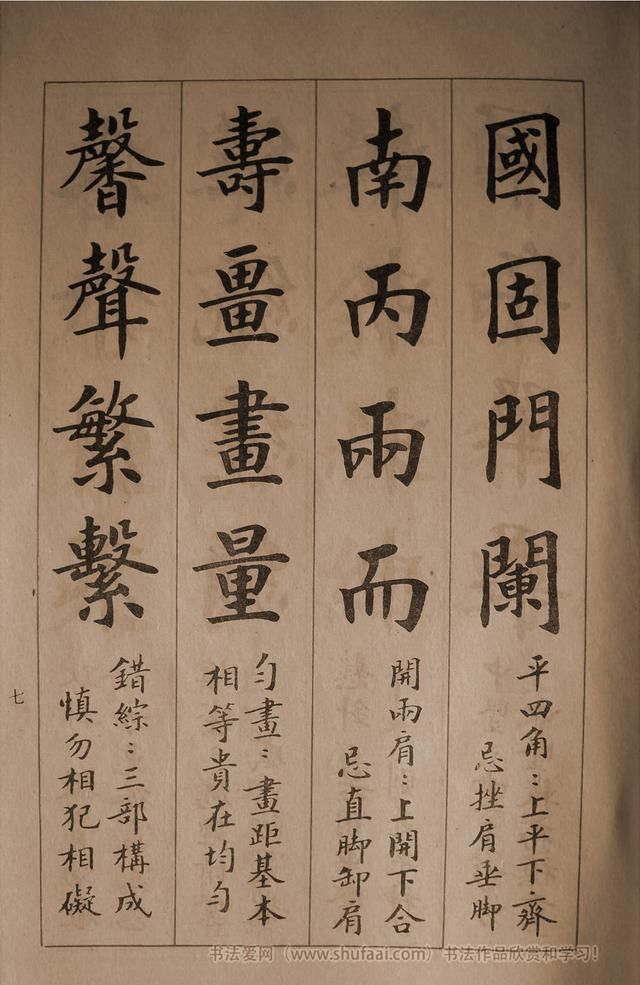 國固門闌
平四角：上平下齊
忌挫肩垂脚
南丙雨而
開兩肩：上開下合
忌直脚卸肩
壽畺畫量
勻畫：畫距基本
相等貴在均勻
馨聲繁繫
錯綜：三部構成
慎勿相犯相礙
七
书法爱网（www.shufaai.com）书法作品欣赏和学习！